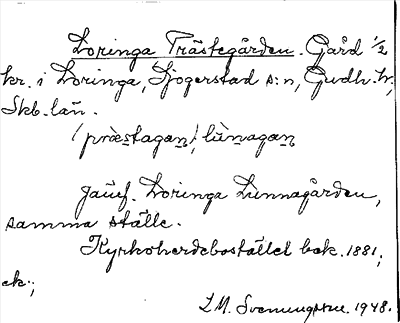 Loringa Prästegården. Gård 1/2
kr. i Loringa, Sjogerstad s:n, Gudh. hr,
Skb. län.
/præstagaɲ/, lùnagaɲ
Jämf. Loringa Lunnagården,
samma ställe.
Kyrkoherdebostället bek. 1881;
ek.;
L.M. Svenungsson. 1948.